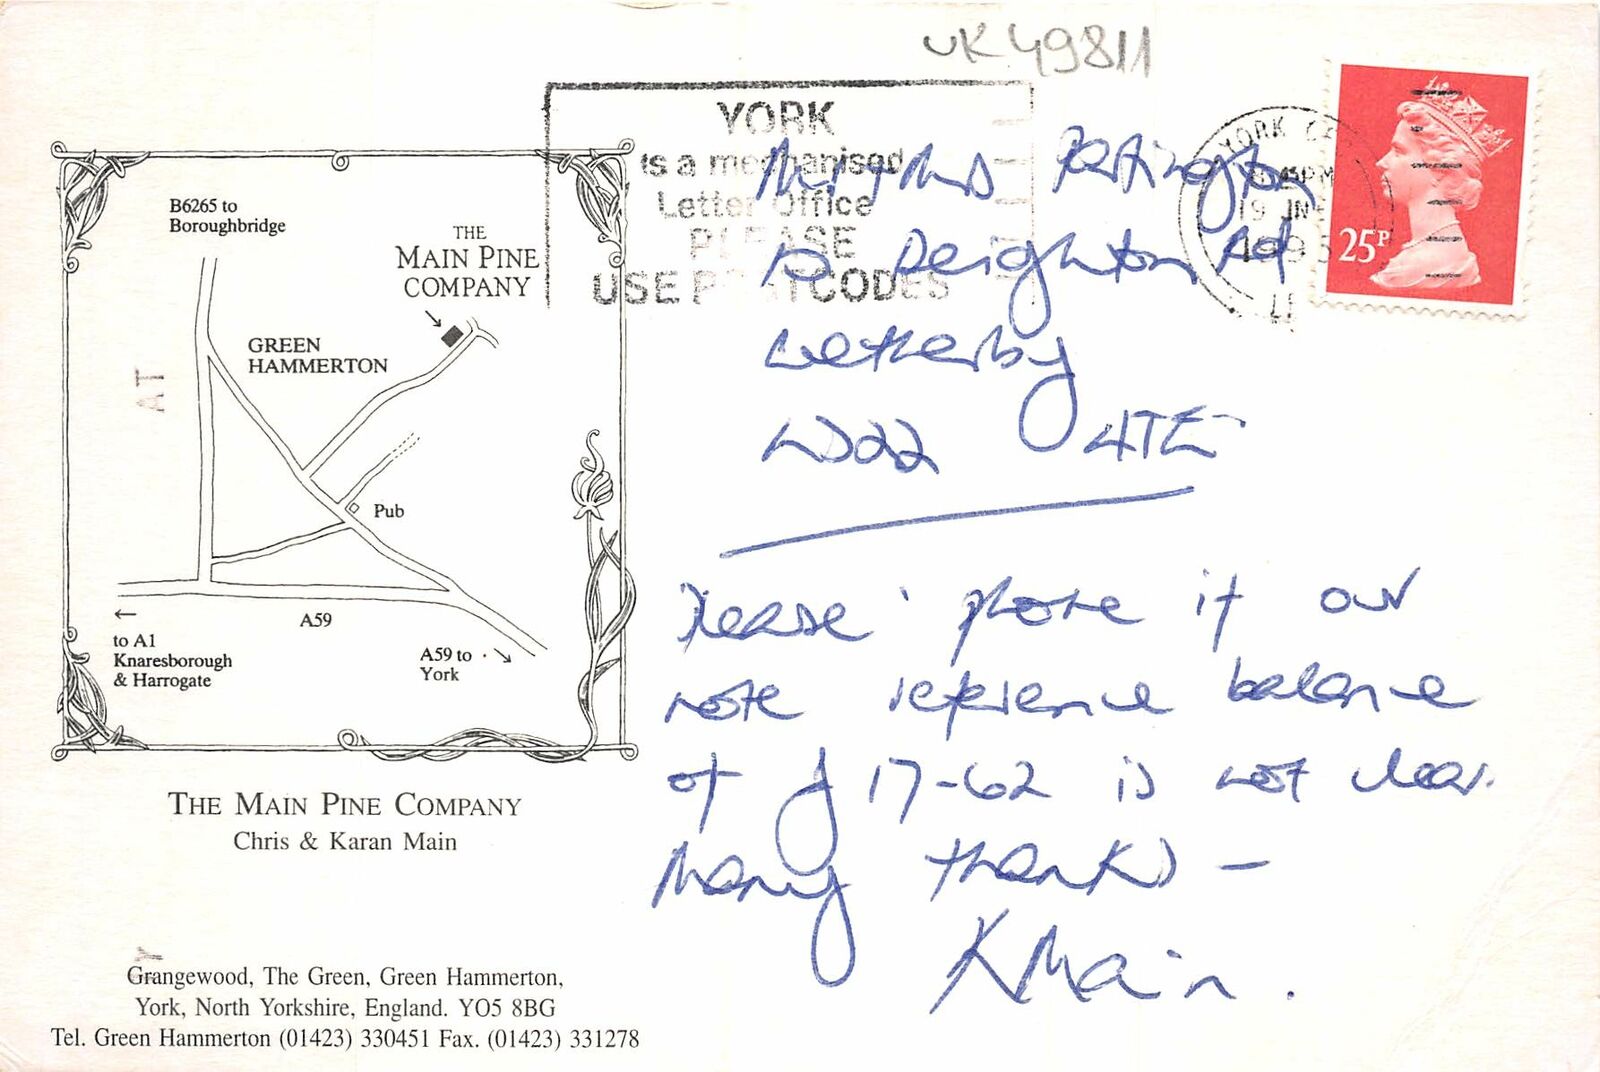 UK49811
YORK
is a mechanised
Letter Office
PLEASE
USE POSTCODES
YORK
19 JNE
1995
25P
B6265 to
Boroughbridge
THE
MAIN PINE
COMPANY
GREEN
HAMMERTON
AT
Pub
A59
to A1
Knaresborough
& Harrogate
A59 to
York
THE MAIN PINE COMPANY
Chris & Karan Main
Y
Grangewood, The Green, Green Hammerton,
York, North Yorkshire, England. YO5 8BG
Tel. Green Hammerton (01423) 330451 Fax. (01423) 331278
Mr & Mrs Partington
Deighton Rd
Wetherby
LS22 4TE
Please 'phone if our
note reference balance
of £17-62 is not clear.
Many thanks -
K Main.